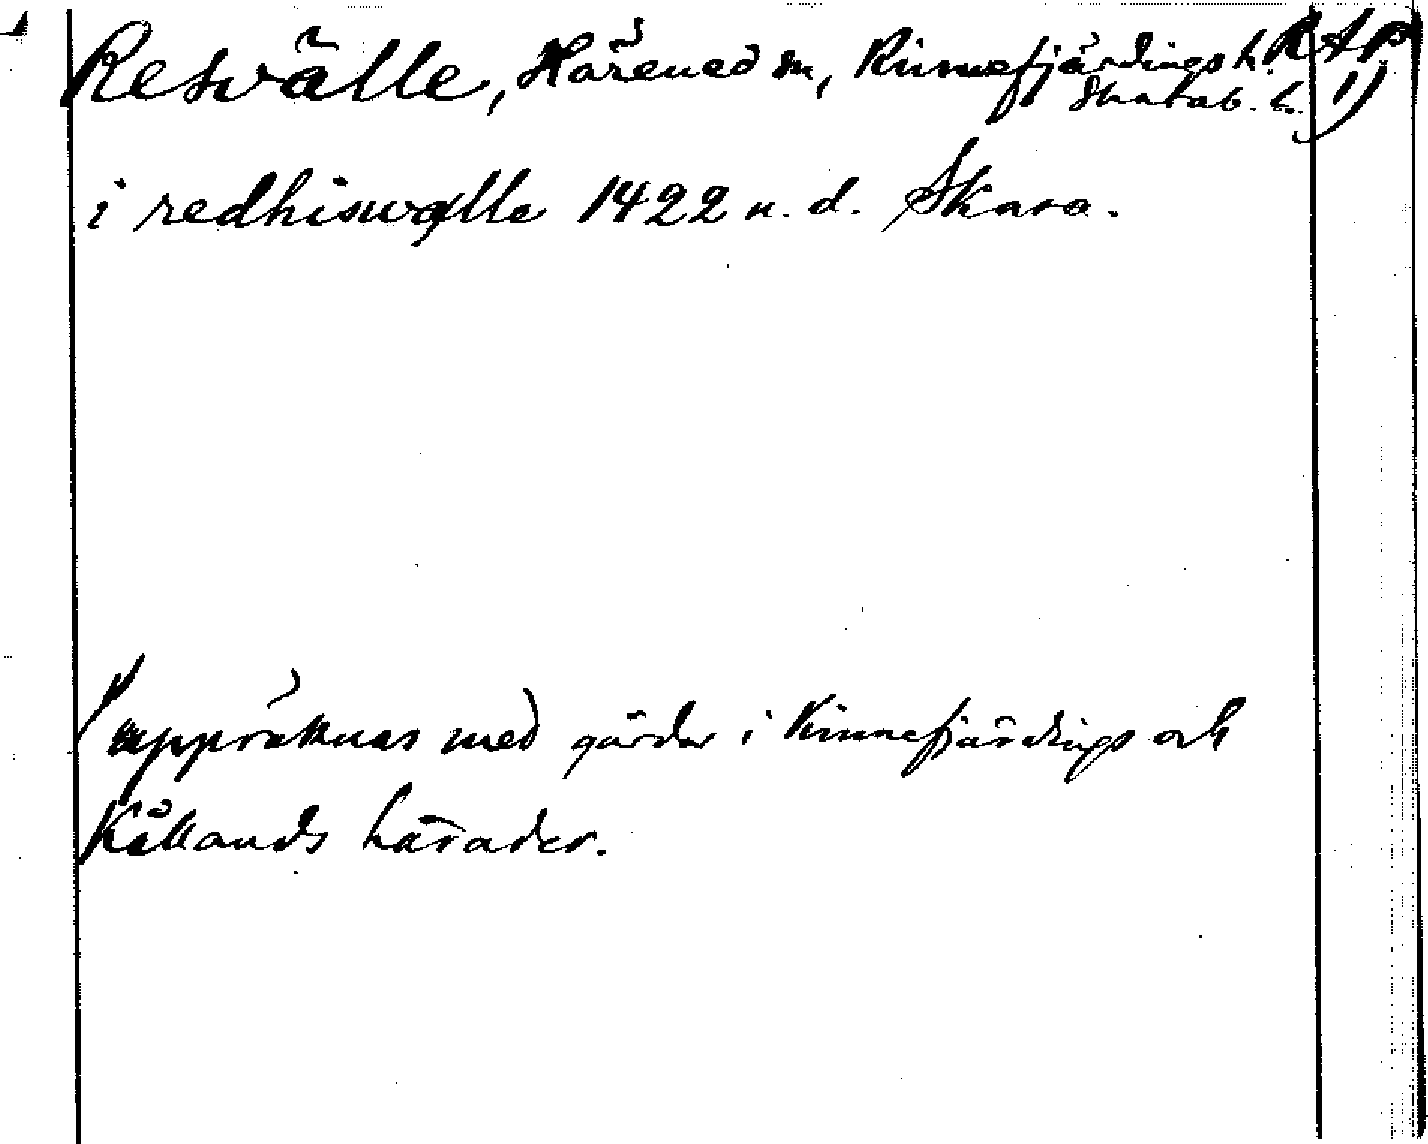 Resvälle, Härened sn, Kinnefjärdings h. RAp
Skarab. l. 1)
i redhiswælle 1422 u. d. Skara.
1) uppräknas med gårdar i Kinnefjärdings och
Kållands härader.